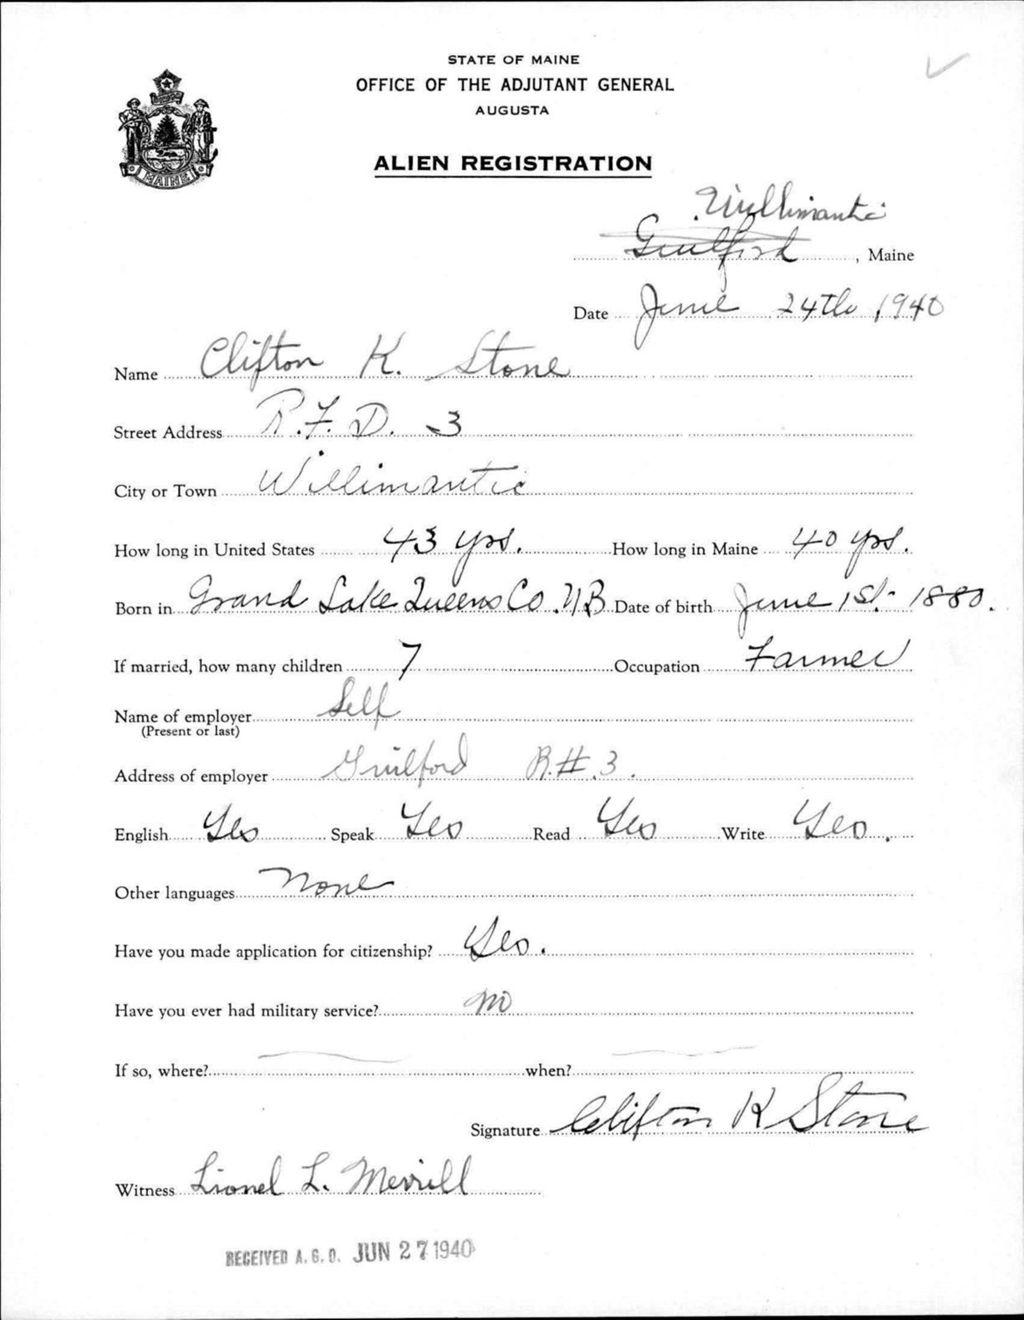 STATE OF MAINE
OFFICE OF THE ADJUTANT GENERAL
AUGUSTA
MAINE
ALIEN REGISTRATION
Willimantic
Guilford, Maine
Date June 24th 1940
Name Clifton K. Stone
Street Address R.F.D. 3
City or Town Willimantic
How long in United States 43 yrs. How long in Maine 40 yrs.
Born in Grand Lake Queens Co. N B Date of birth June 1st - 1880.
If married, how many children 7 Occupation Farmer
Name of employer Self
(Present or last)
Address of employer Guilford R.#.3.
English Yes Speak Yes Read Yes Write Yes.
Other languages None
Have you made application for citizenship? Yes.
Have you ever had military service? no
If so, where? when?
Signature Clifton K Stone
Witness Lionel L. Merrill
RECEIVED A.G.O. JUN 27 1940